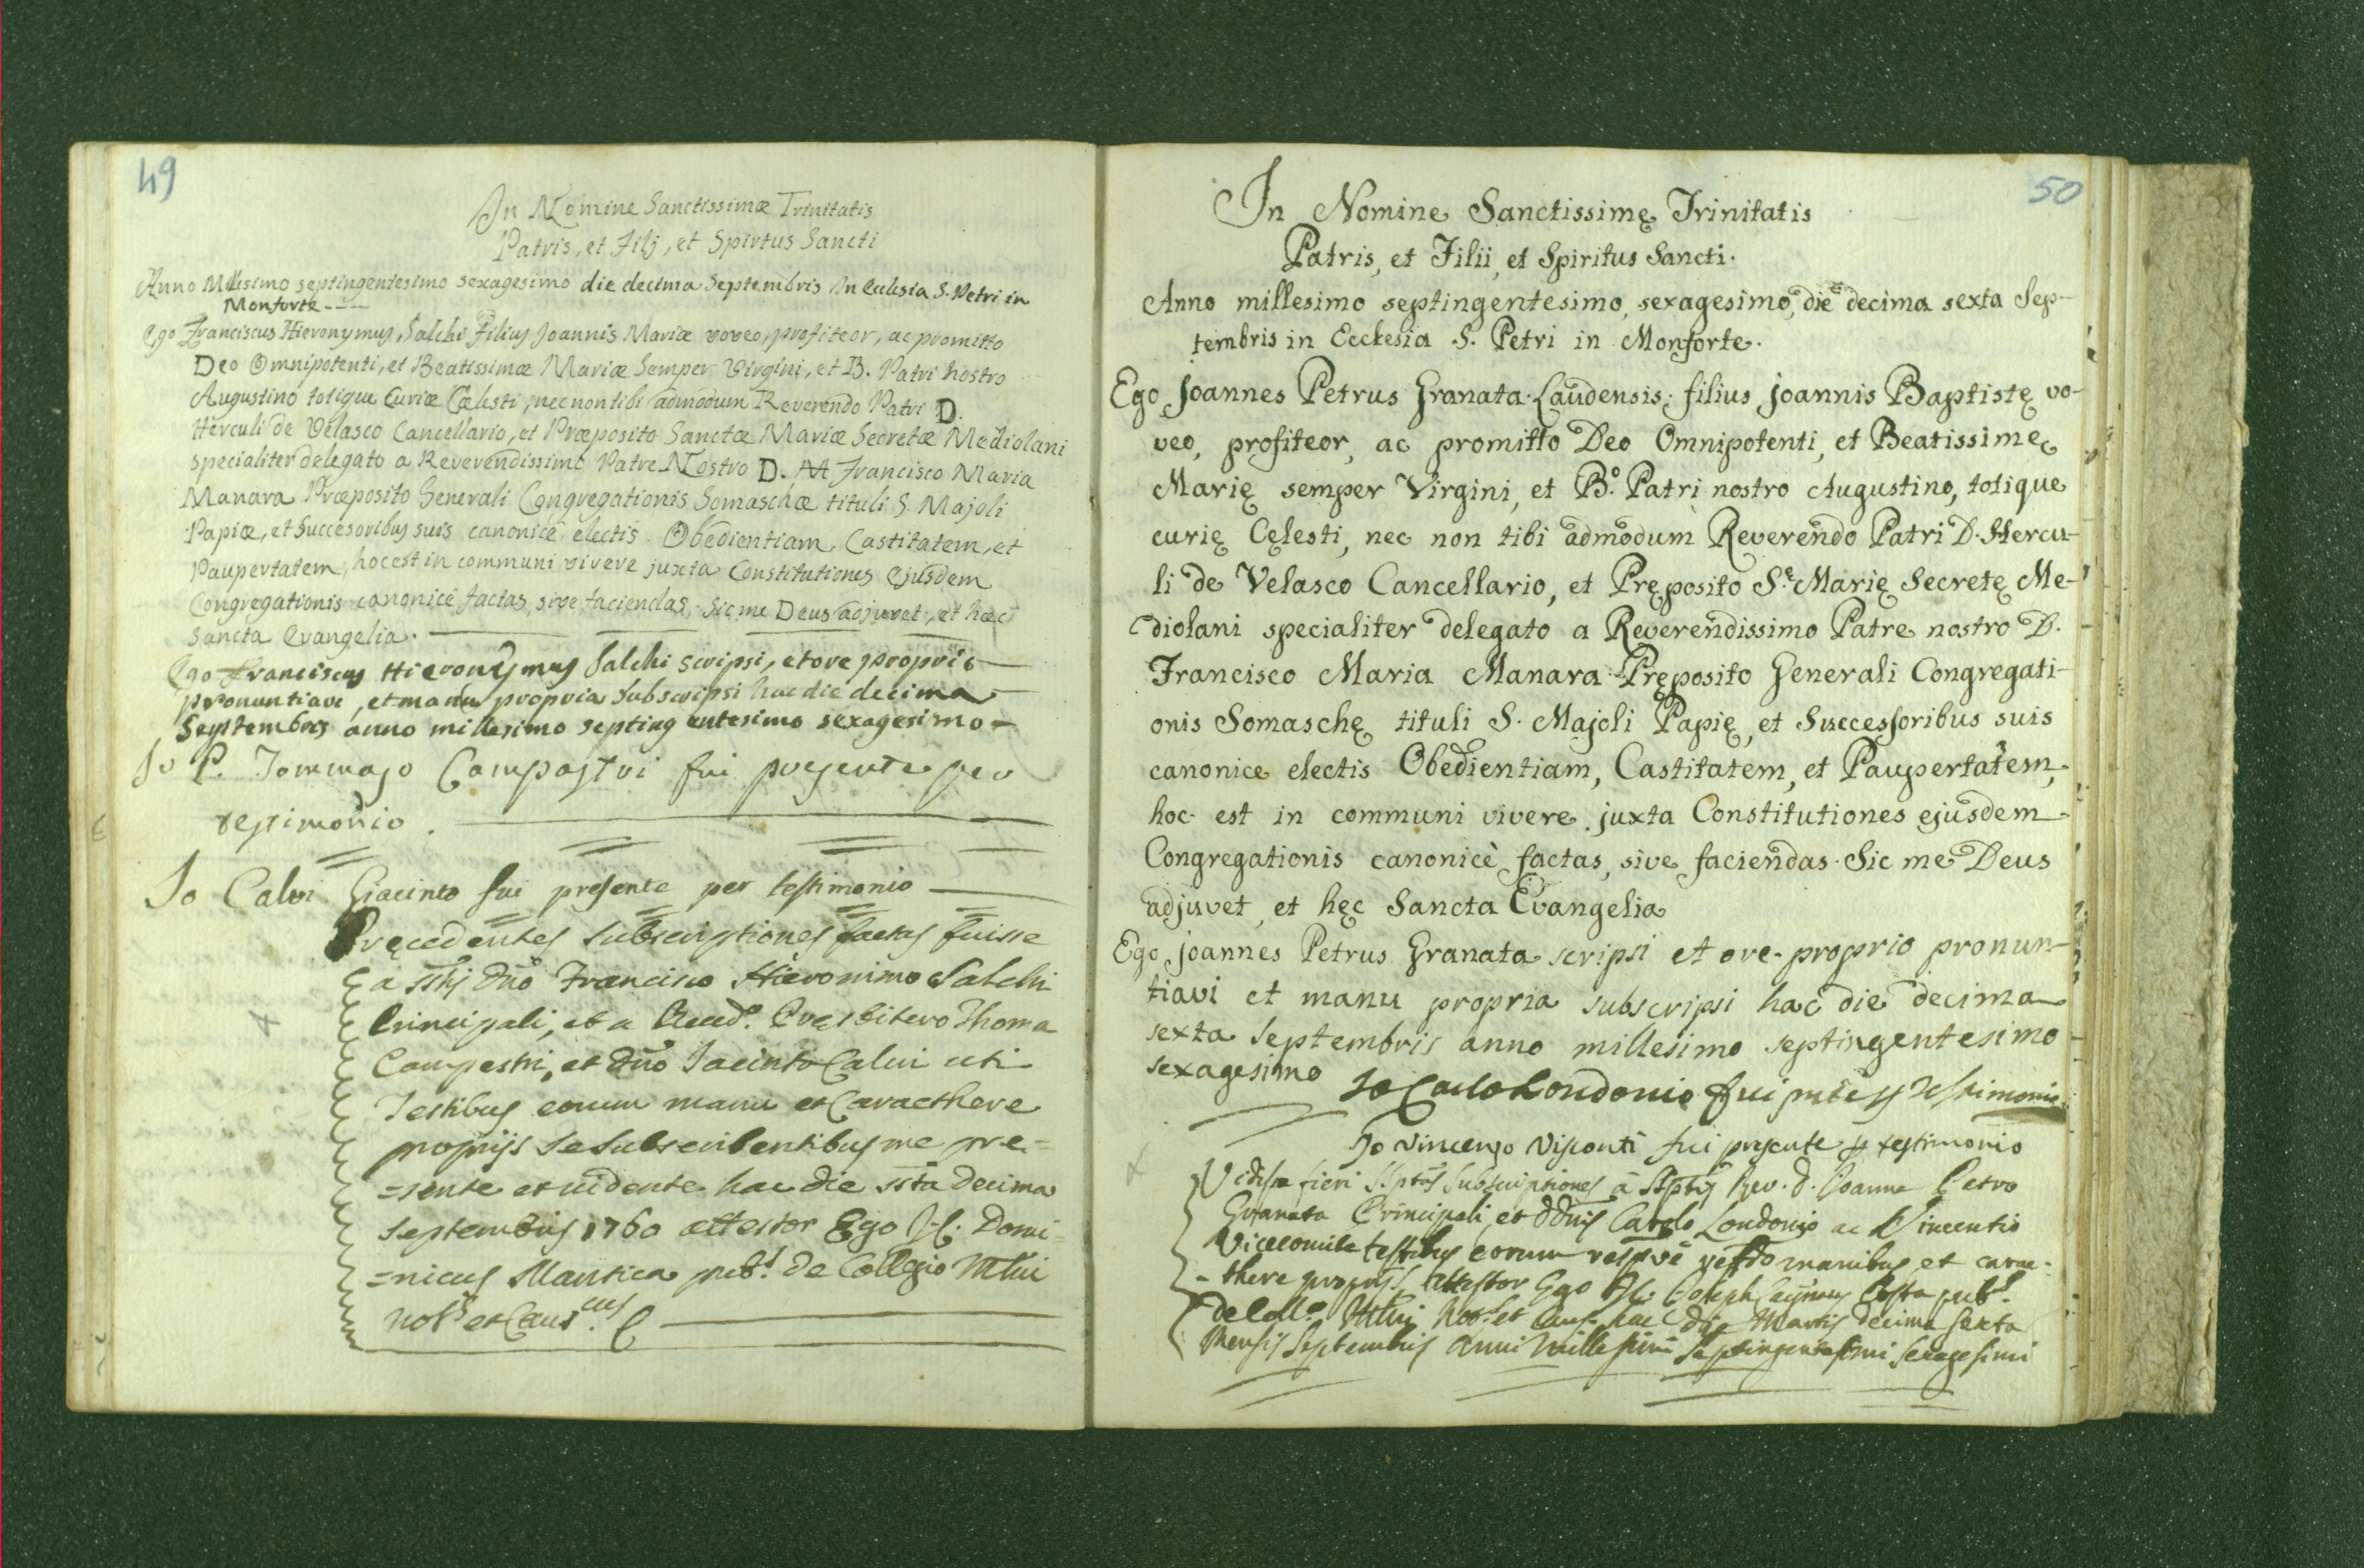 49
In Nomine Sanctissimæ Trinitatis
Patris, et Filij, et Spirtus Sancti
Anno Millesimo septingentesimo sexagesimo die decima Septembris In Eclesia S. Petri in
Monforte - - -
Ego Franciscus Hieronymus Salchi Filius Joannis Mariæ voveo, profiteor, ac promitto
Deo Omnipotenti, et Beatissimæ Mariæ Semper Virgini, et B. Patri Nostro
Augustino totique Curiæ Cælesti, nec non tibi admodum Reverendo Patri D.
Herculi de Velasco Cancellario, et Præposito Sanctæ Mariæ Secretæ Mediolani
specialiter delegato a Reverendissimo Patre Nostro D. Francisco Maria
Manara Præposito Generali Congregationis Somaschæ tituli S Majoli
Papiæ, et Succesoribus suis canonicè electis Obedientiam, Castitatem, et
Paupertatem, hoc est in communi vivere juxta Constitutiones Ejusdem
Congregationis canonicè factas, sive faciendas. Sic me Deus adjuvet, et hæc
Sancta Evangelia.
Ego Franciscus Hieronymus Salchi scripsi, et ore proprio
pronuntiavi, et manu propria subscripsi hac die decima
Septembris anno millesimo septingentesimo sexagesimo -
Io P. Tommaso Campastri fui presente per
testimonio.
Io Calvi Giacinto fui presente per testimonio
Pręcedentes subscriptiones factas fuisse
a Francisco Hieronimo Salchi
Principali, et a Pręsbitero Thoma
Campestri, et Dño Jacinto Calvi uti
Testibus eorum manu et Caracthere
proprijs se subscribentibus me pre=
=sente et vidente hac die decima
Septembris 1760 attestor Ego Domi=
=nicus Mantica pub. de Collegio Mlni
Not.s et Caus.cus
50
In Nomine Sanctissimę Trinitatis
Patris, et Filii, et Spiritus Sancti.
Anno millesimo septingentesimo, sexagesimo, die decima sexta Sep-
tembris in Ecclesia S. Petri in Monforte.
Ego Joannes Petrus Granata Laudensis, filius Joannis Baptistę vo-
veo, profiteor, ac promitto Deo Omnipotenti, et Beatissimę
Marię semper Virgini, et B.º Patri nostro Augustino, totique
curię Cęlesti, nec non tibi admodum Reverendo Patri D. Hercu-
li de Velasco Cancellario, et Pręposito S.ę Marię Secretę Me-
diolani specialiter delegato a Reverendissimo Patre nostro D.
Francisco Maria Manara Pręposito Generali Congregati-
onis Somaschę tituli S. Majoli Papię, et Successoribus suis
canonice electis Obedientiam, Castitatem, et Paupertatem,
hoc est in communi vivere juxta Constitutiones ejusdem
Congregationis canonicè factas, sive faciendas. Sic me Deus
adjuvet, et hęc Sancta Evangelia
Ego Joannes Petrus Granata scripsi et ore proprio pronun-
tiavi et manu propria subscripsi hac die decima
sexta Septembris anno millesimo septingentesimo
sexagesimo
Io Carlo Londonio fui testimonio
Io Vincenzo Visconti fui presente testimonio
Vidisse fieri subscriptiones à Rev. d. Joanne Petro
Granata Principali, et Carolo Londonio ac Vincentio
Vicecomite testibus eorum manibus et carac-
there proprijs attestor Ego Joseph Costa pub.
de Coll.o Mlni Not. et Caus. hac die Martis decima sexta
Mensis Septembris Anni Millesimi Septingentesimi Sexagesimi